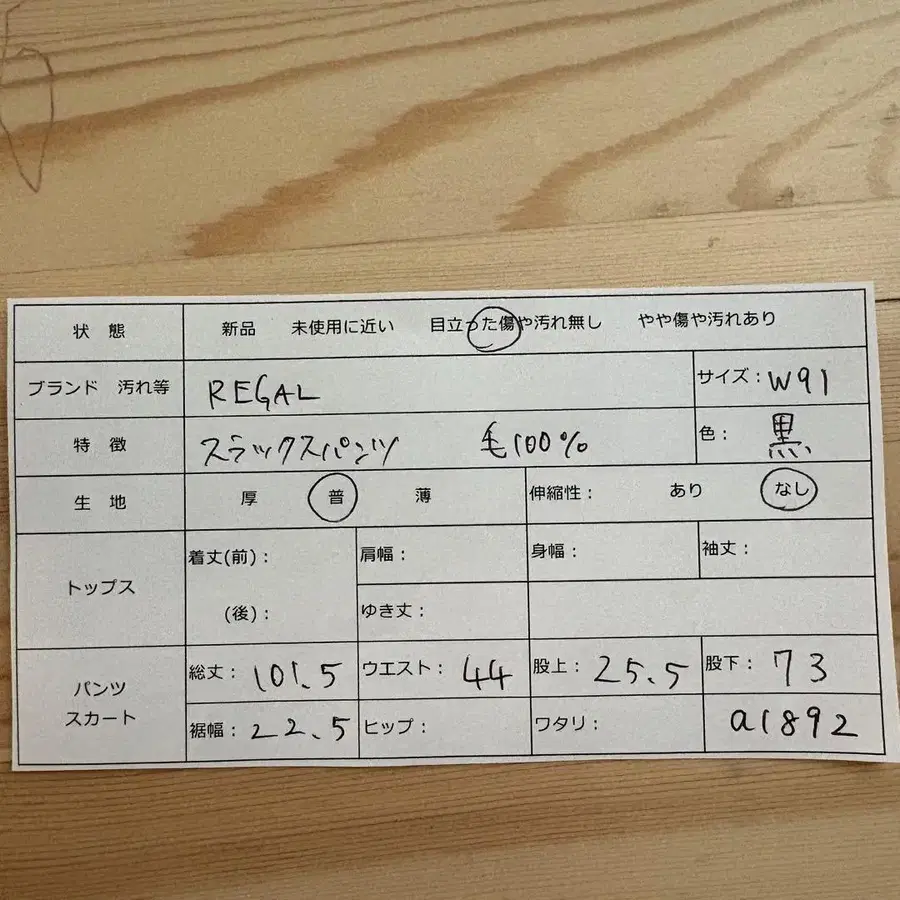 状 態 新品 未使用に近い 目立った傷や汚れ無し やや傷や汚れあり
ブランド 汚れ等 REGAL サイズ：W91
特 徴 スラックスパンツ 毛100% 色：黒
生 地 厚 普 薄 伸縮性： あり なし
トップス
着丈(前)： 肩幅： 身幅： 袖丈：
(後)： ゆき丈：
パンツ
スカート
総丈：101.5 ウエスト：44 股上：25.5 股下：73
裾幅：22.5 ヒップ： ワタリ： a1892